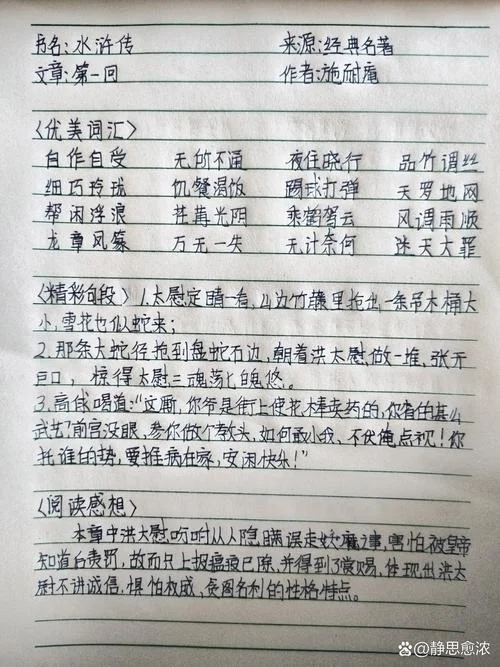 书名:水浒传 来源:经典名著
文章:第一回 作者:施耐庵
〈优美词汇〉
自作自受 无所不通 夜住晓行 品竹调丝
细巧玲珑 饥餐渴饭 踢球打弹 天罗地网
帮闲浮浪 荏苒光阴 乘鹤驾云 风调雨顺
龙章凤篆 万无一失 无计奈何 迷天大罪
〈精彩句段〉1.太尉定睛一看,山边竹藤里抢出一条吊木桶大
小,雪花也似蛇来;
2.那条大蛇径抢到盘蛇石边,朝着洪太尉做一堆,张开
巨口, 惊得太尉三魂荡七魄悠。
3.高俅喝道:"这厮,你爷是街上使花棒卖药的,你省的甚么
武艺?前官没眼,参你做个教头,如何敢小我、不伏俺点视!你
托谁的势,要推病在家,安闲快乐!"
〈阅读感想〉
本章中洪太尉吩咐从人隐瞒误走妖魔之事,害怕被皇帝
知道自责罚,故而只上报瘟疫已除,并得到了赏赐,体现出洪太
尉不讲诚信,惧怕权威,贪图名利的性格特点。
百家号/静思愈浓